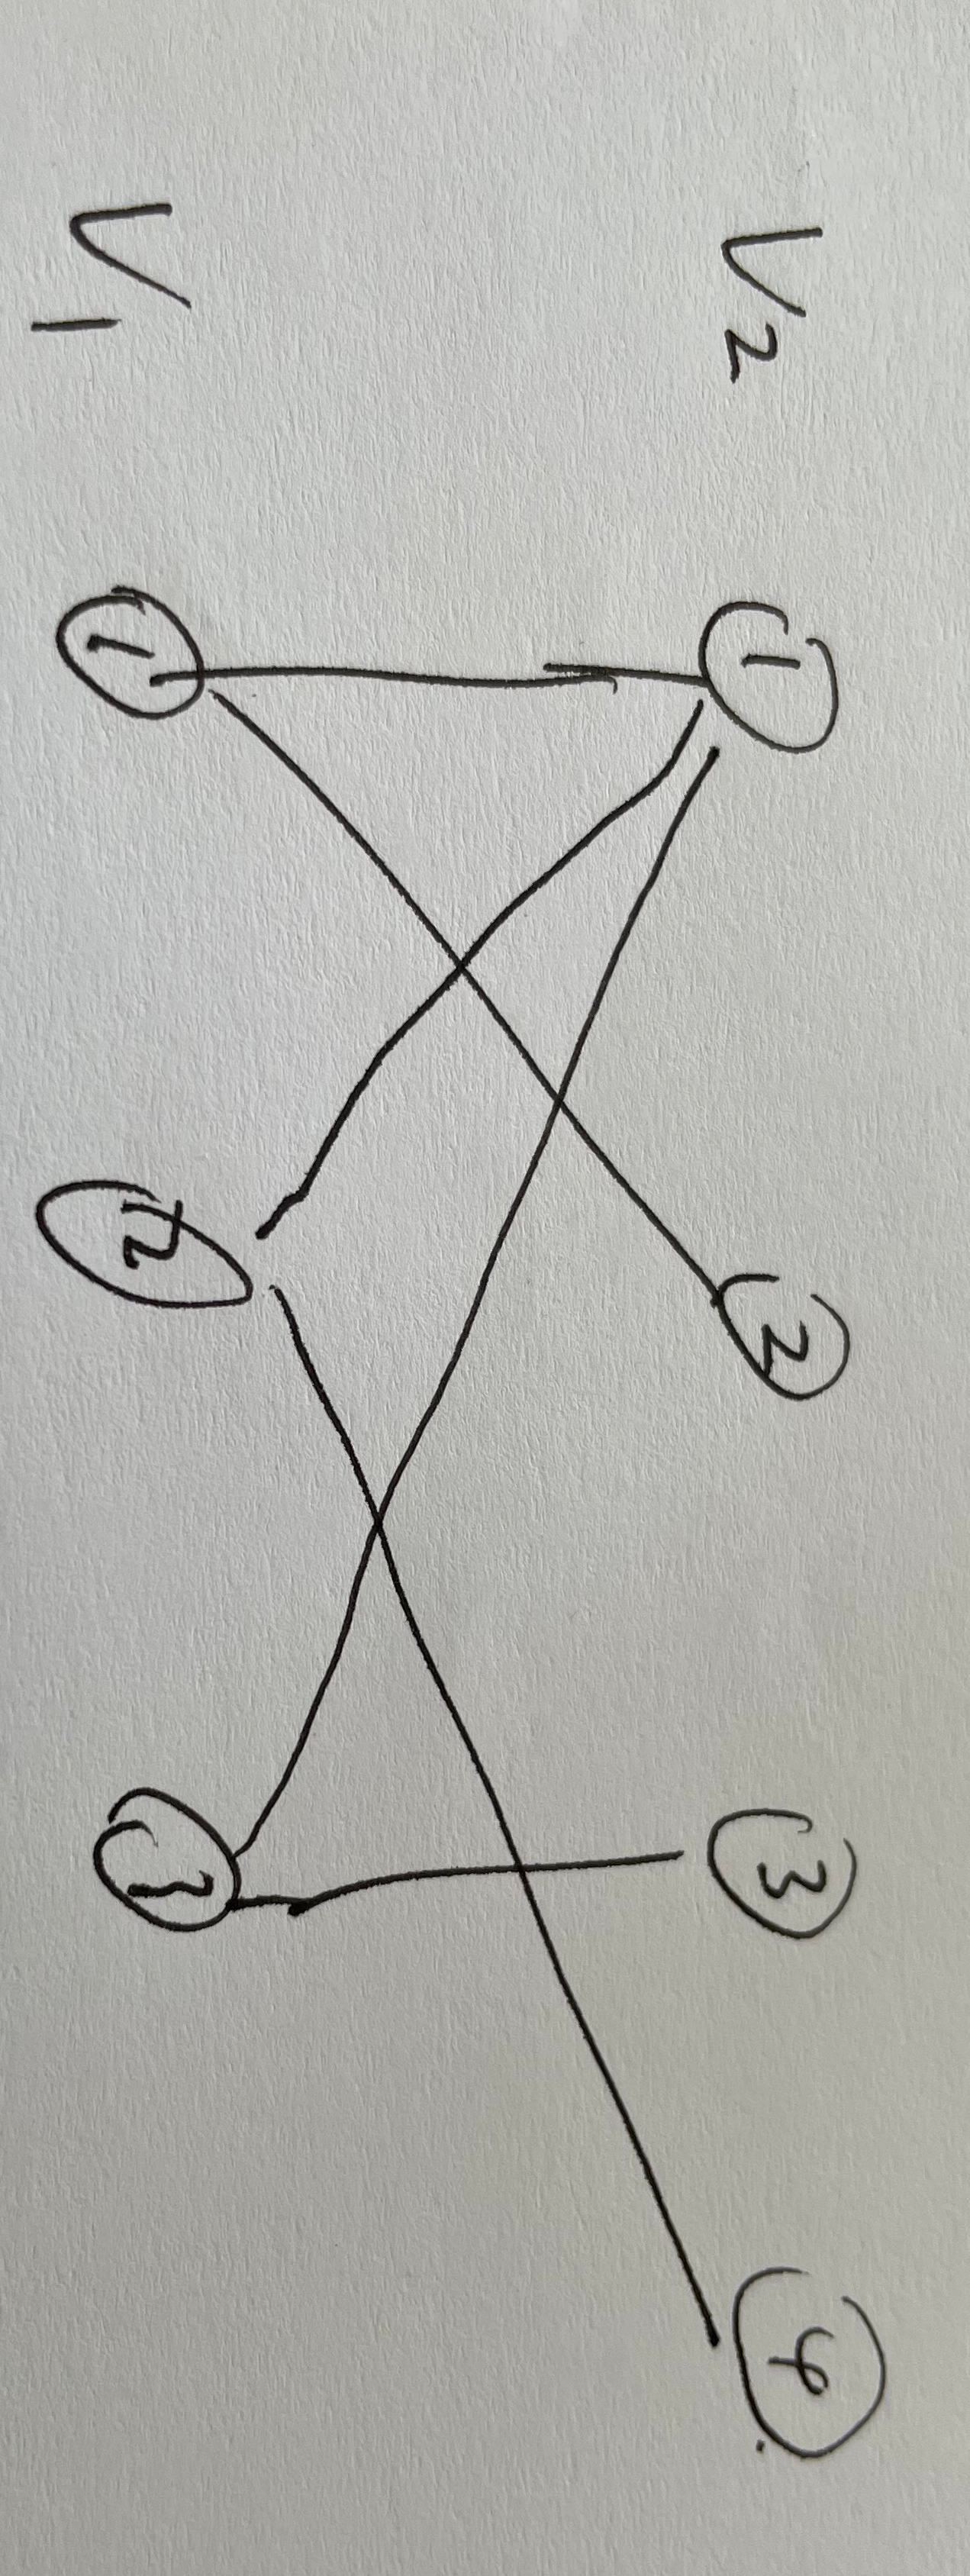 V2 1 2 3 4
V1 1 2 3